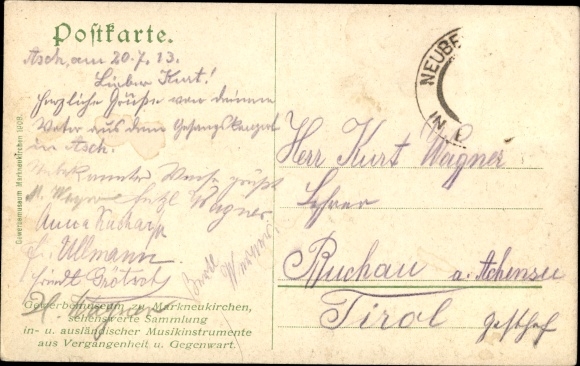 Postkarte.
Asch, am 20.7.13.
Lieber Kurt!
Herzliche Grüße von deinem
Vater aus dem Gesangskonzert
in Asch.
Unbekannter Weise grüßt
M. Wagner Wagner
Anna
F. Ullmann
Wagner
Gewerbemuseum zu Markneukirchen,
sehenswerte Sammlung
in- u. ausländischer Musikinstrumente
aus Vergangenheit u. Gegenwart.
Gewerbemuseum Markneukirchen 1908.
NEUBE
IN
Herr Kurt Wagner
Lehrer
Buchau a. Achensee
Tirol Gasthof